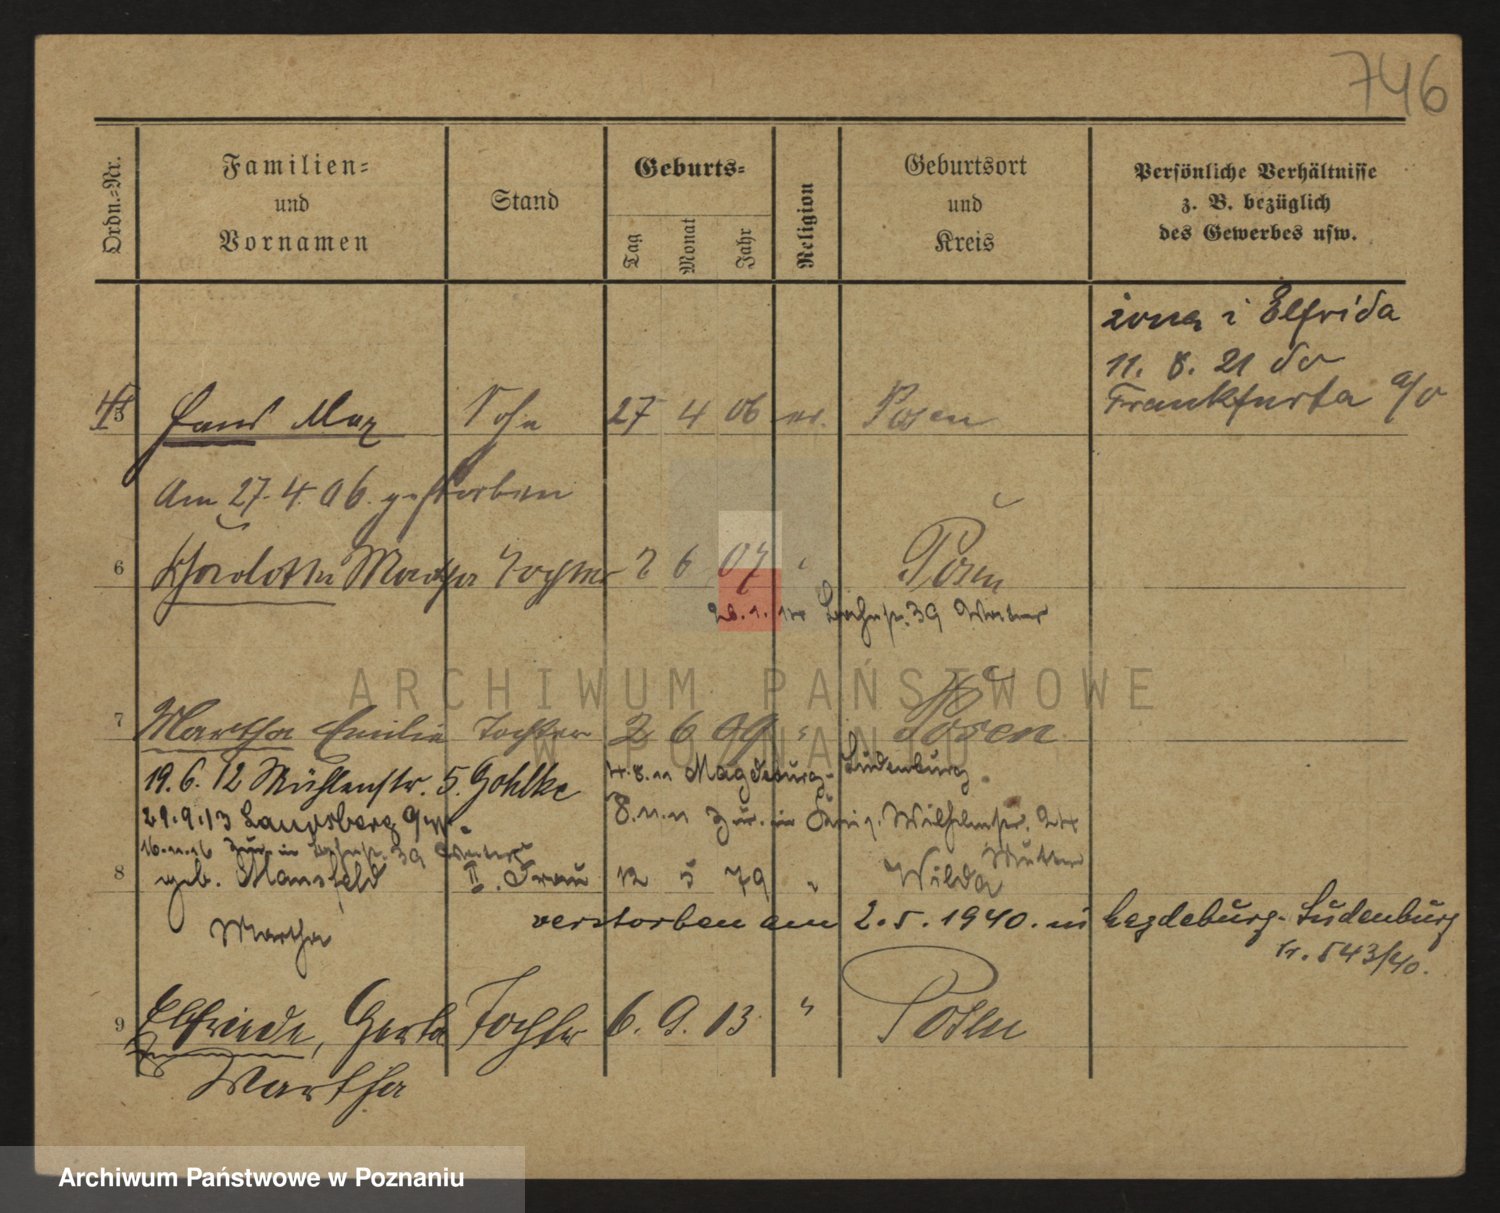 746
Ordn.-Nr.
Familien-
und
Vornamen
Stand
Geburts-
Tag
Monat
Jahr
Religion
Geburtsort
und
Kreis
Persönliche Verhältnisse
z. B. bezüglich
des Gewerbes usw.
żona i Elfrida
11. 8. 21 do
Frankfurta a/O
5 Hans Max Sohn 27 4 06 ev. Posen
Am 27. 4 06. gestorben
6 Charlotte Martha Tochter 2 6 07 Posen
39
7 Martha Emilie Tochter 2 6 09 " Posen
19. 6. 12 Mühlenstr. 5. Gohlke
4. 8. 11 Magdeburg-Sudenburg
29. 9. 13 Landsberg
8. 11. 11 zur. in Wilhelmstr.
16. 11. 16 zur. in 39
Mutter
8 geb. Mansfeld II. Frau 12 5 79 " Wilda
Martha
verstorben am 2. 5. 1940. in Magdeburg-Sudenburg
Nr. 543/40.
9 Elfriede, Gerta Tochter 6. 9. 13 " Posen
Martha
ARCHIWUM PAŃSTWOWE
W POZNANIU
Archiwum Państwowe w Poznaniu